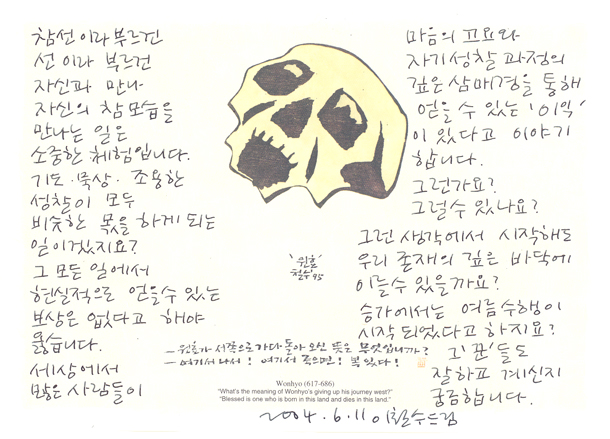 참선이라부르건
선이라 부르건
자신과 만나
자신의 참모습을
만나는 일은
소중한 체험입니다.
기도·묵상·조용한
성찰이 모두
비슷한 몫을 하게 되는
일이겠지요?
그 모든 일에서
현실적으로 얻을수 있는
보상은 없다고 해야
옳습니다.
세상에서
많은 사람들이
마음의 고요와
자기성찰 과정의
깊은 삼매경을 통해
얻을 수 있는 '이익'
이 있다고 이야기
합니다.
그런가요?
그럴수 있나요?
그런 생각에서 시작해도
우리 존재의 깊은 바닥에
이를 수 있을까요?
승가에서는 여름수행이
시작 되었다고 하지요?
그 '꾼'들도
잘하고 계신지
궁금합니다.
'원효'
철수 '95
— 원효가 서쪽으로가다 돌아 오신 뜻은 무엇입니까?
— 여기서 나서! 여기서 죽으면! 복 있다!
Wonhyo (617-686)
"What's the meaning of Wonhyo's giving up his journey west?"
"Blessed is one who is born in this land and dies in this land."
2004.6.11 이철수드림